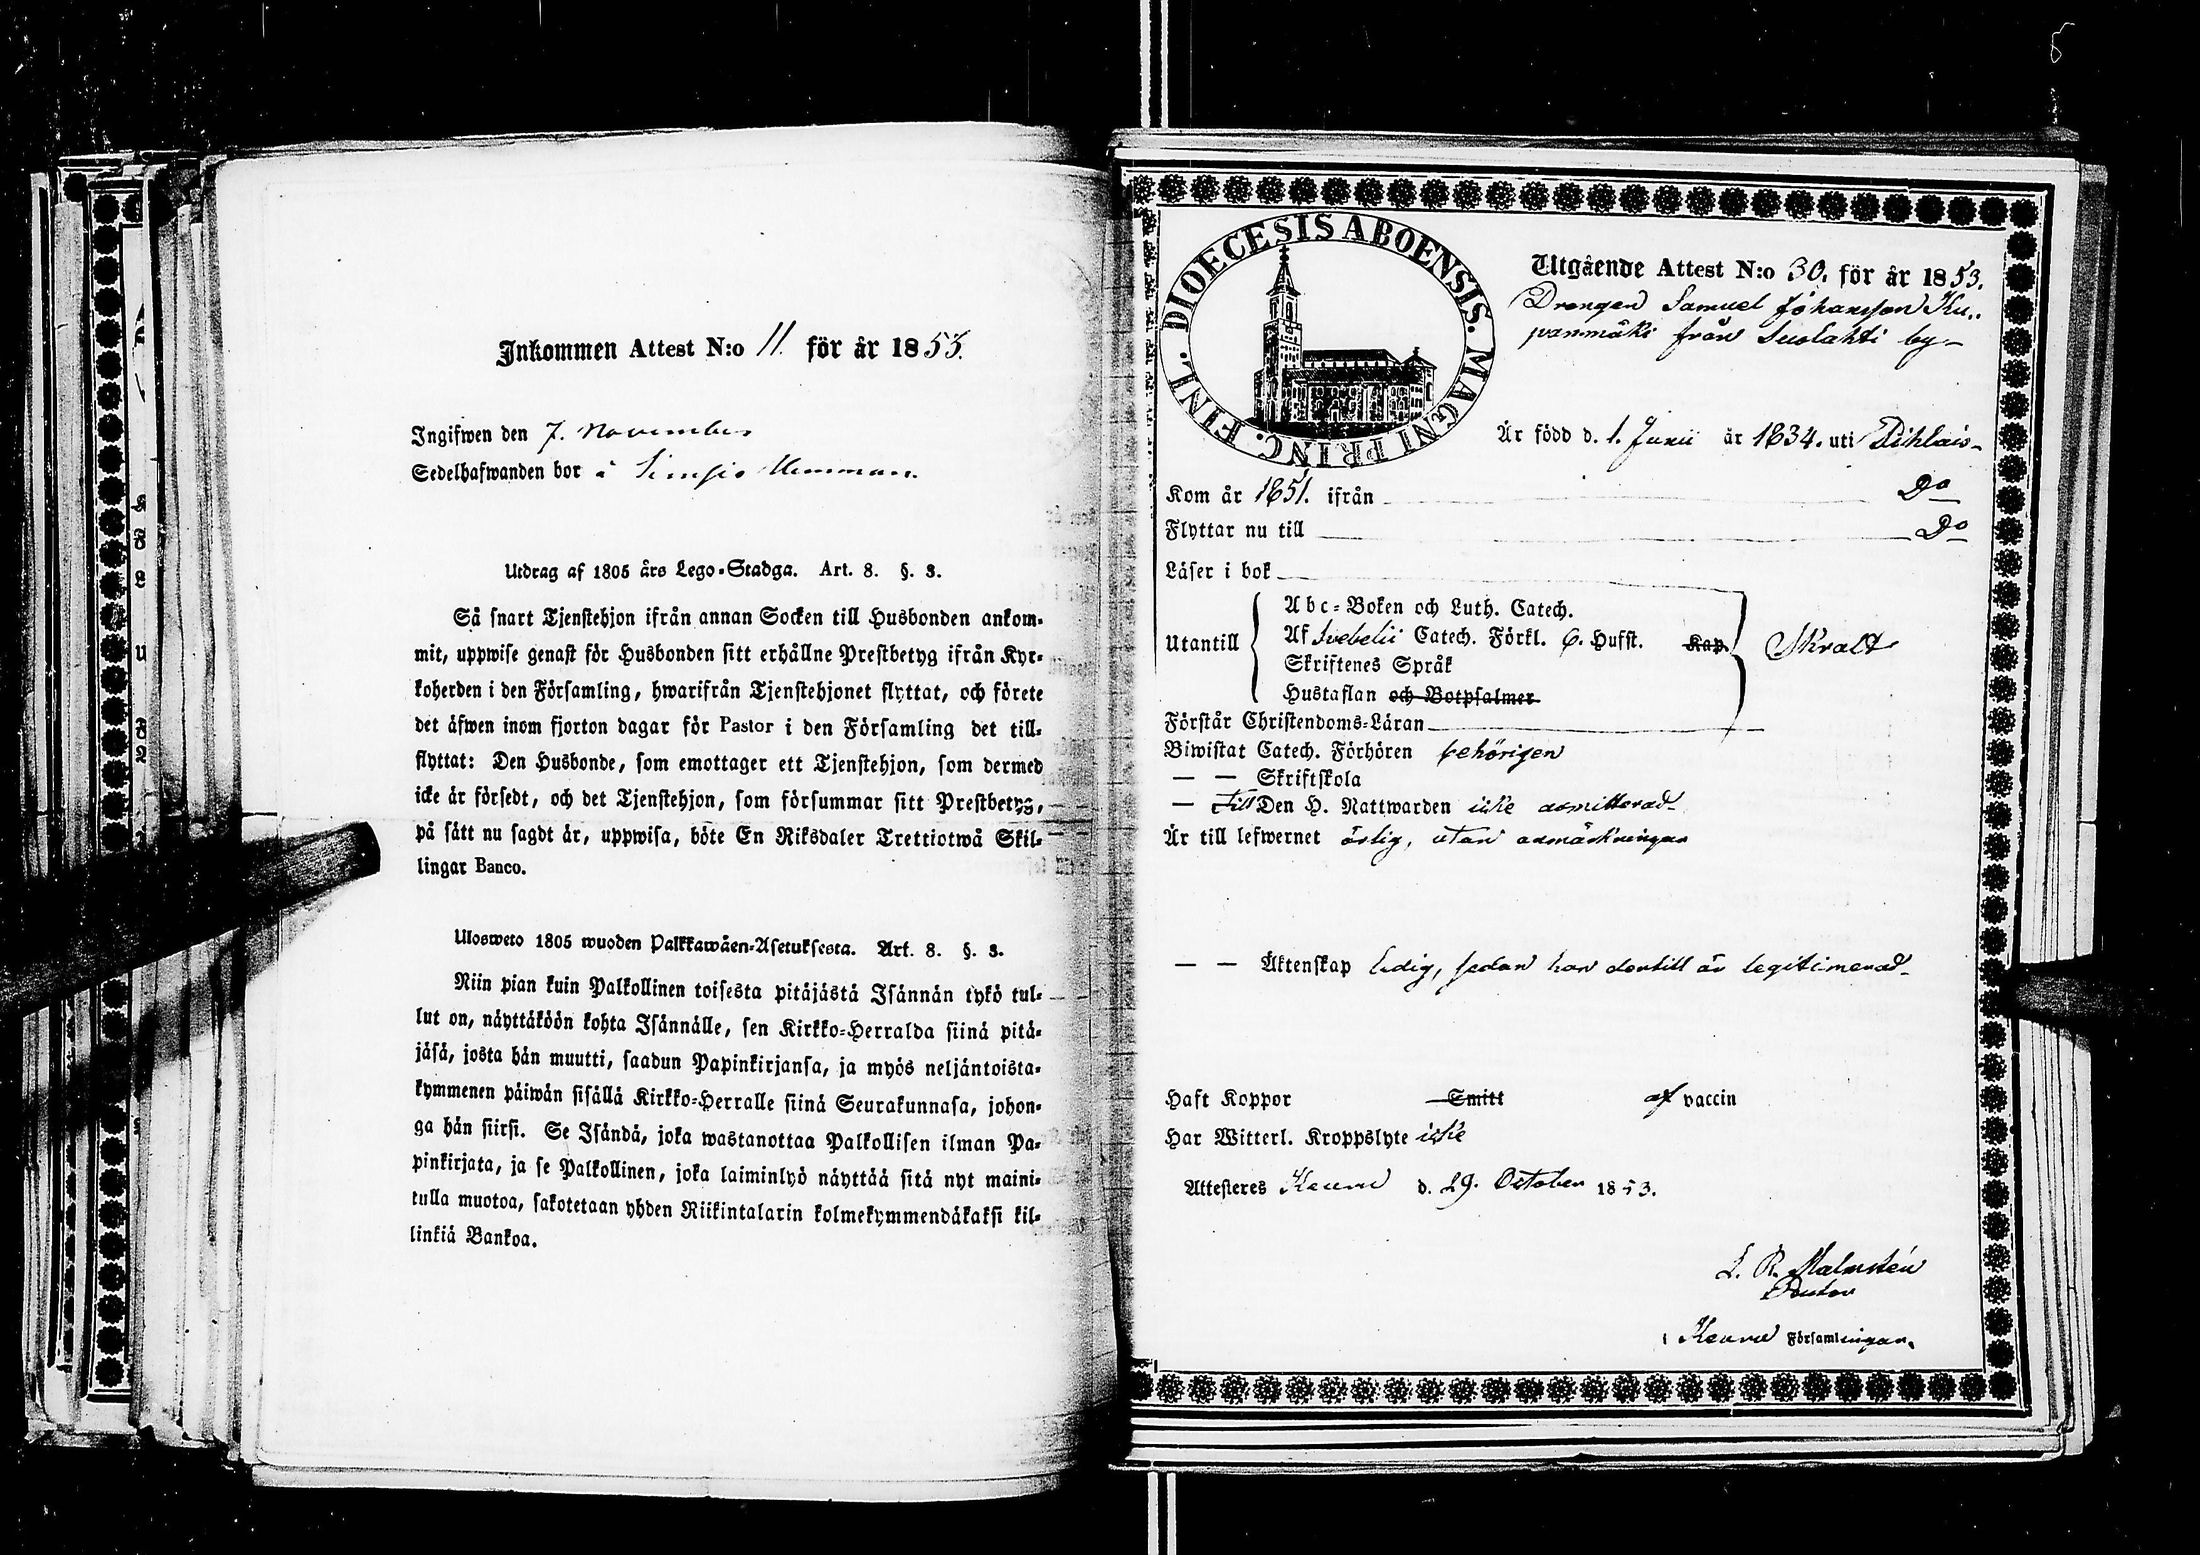 Inkommen Attest N:o 11. för år 1853.
Ingifwen den 7. November
Sedelhafwanden bor å Simsiö Hemman.
Utdrag af 1805 års Lego-Stadga. Art. 8. §. 3.
Så snart Tjenstehjon ifrån annan Socken till Husbonden ankom-
mit, uppwise genast för Husbonden sitt erhållne Prestbetyg ifrån Kyr-
koherden i den Församling, hwarifrån Tjenstehjonet flyttat, och förete
det äfwen inom fjorton dagar för Pastor i den Församling det till-
flyttat: Den Husbonde, som emottager ett Tjenstehjon, som dermed
icke är försedt, och det Tjenstehjon, som försummar sitt Prestbetyg,
på sätt nu sagdt är, uppwisa, böte En Riksdaler Trettiotwå Skil-
lingar Banco.
Ulosweto 1805 wuoden Palkkawäen-Asetuksesta. Art. 8. §. 3.
Niin pian kuin Palkollinen toisesta pitäjästä Isännän tykö tul-
lut on, näyttäköön kohta Isännälle, sen Kirkko-Herralda siinä pitä-
jäsä, josta hän muutti, saadun Papinkirjansa, ja myös neljäntoista-
kymmenen päiwän sisällä Kirkko-Herralle siinä Seurakunnasa, johon-
ga hän siirsi. Se Isändä, joka wastanottaa Palkollisen ilman Pa-
pinkirjata, ja se Palkollinen, joka laiminlyö näyttää sitä nyt maini-
tulla muotoa, sakotetaan yhden Riikintalarin kolmekymmendäkaksi kil-
linkiä Bankoa.
5
DIOECESIS ABOENSIS. MAGNI PRINC. FINL.
Utgående Attest N:o 30. för år 1853.
Drengen Samuel Johansson Ku..
panmäki från Suolahti by
Är född d. 1. Junii år 1834. uti Pihlais-
Kom år 1851. ifrån Do
Flyttar nu till Do
Läser i bok
Abc-Boken och Luth. Catech.
Utantill Af Svebelii Catech. Förkl. 6. Hufst. Kap. Skralt
Skriftenes Språk
Hustaflan och Botpsalmer
Förstår Christendoms-Läran
Biwistat Catech. Förhören behörigen
— — Skriftskola
— Till Den H. Nattwarden icke admitterad
Är till lefwernet ärlig, utan anmärkningar
— — Äktenskap ledig, sedan han dertill är legitimerad
Haft Koppor Smitt af vaccin
Har Witterl. Kroppslyte icke
Attesteres Keuru d. 29. October 1853.
L. R. Malmstén
Pastor
i Keuru Församlingar.